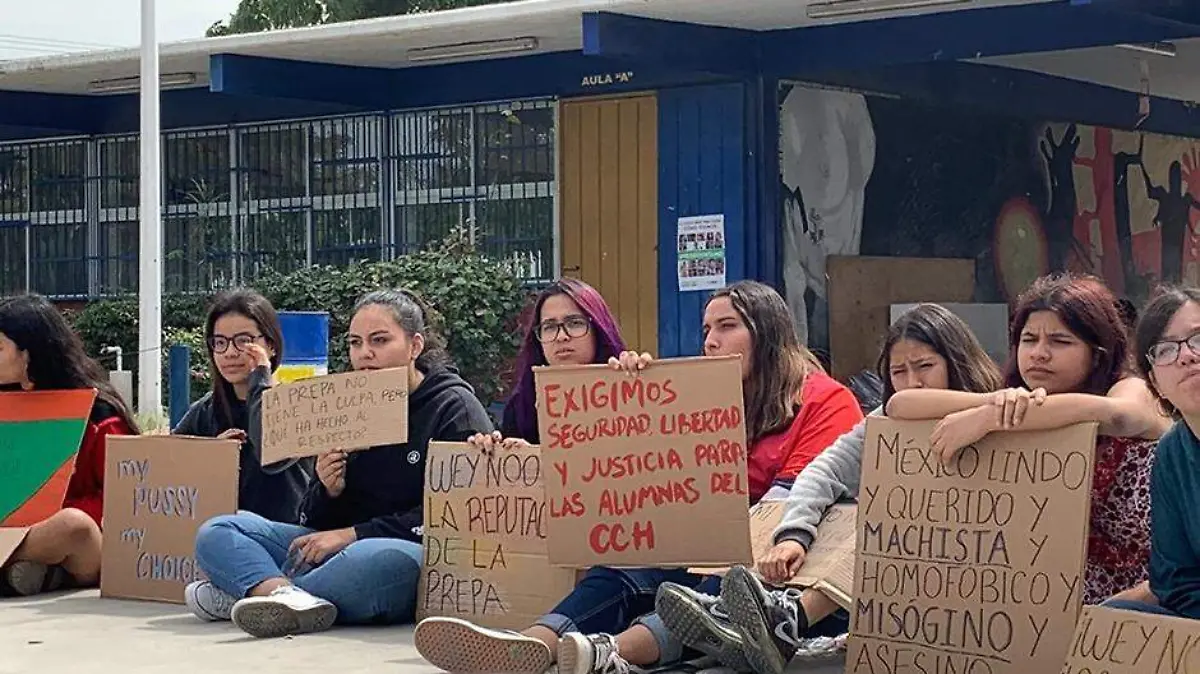 AULA "A"
LA PREPA NO
TIENE LA CULPA, PERO
QUE HA HECHO AL
RESPECTO?
my
PUSSY
my
CHOICE
WEY NOO
LA REPUTAC
DE LA
PREPA
EXIGIMOS
SEGURIDAD, LIBERTAD
Y JUSTICIA PARA
LAS ALUMNAS DEL
CCH
MÉXICO LINDO
Y QUERIDO Y
MACHISTA Y
HOMOFÓBICO Y
MISÓGINO Y
ASESINO
WEY NOO